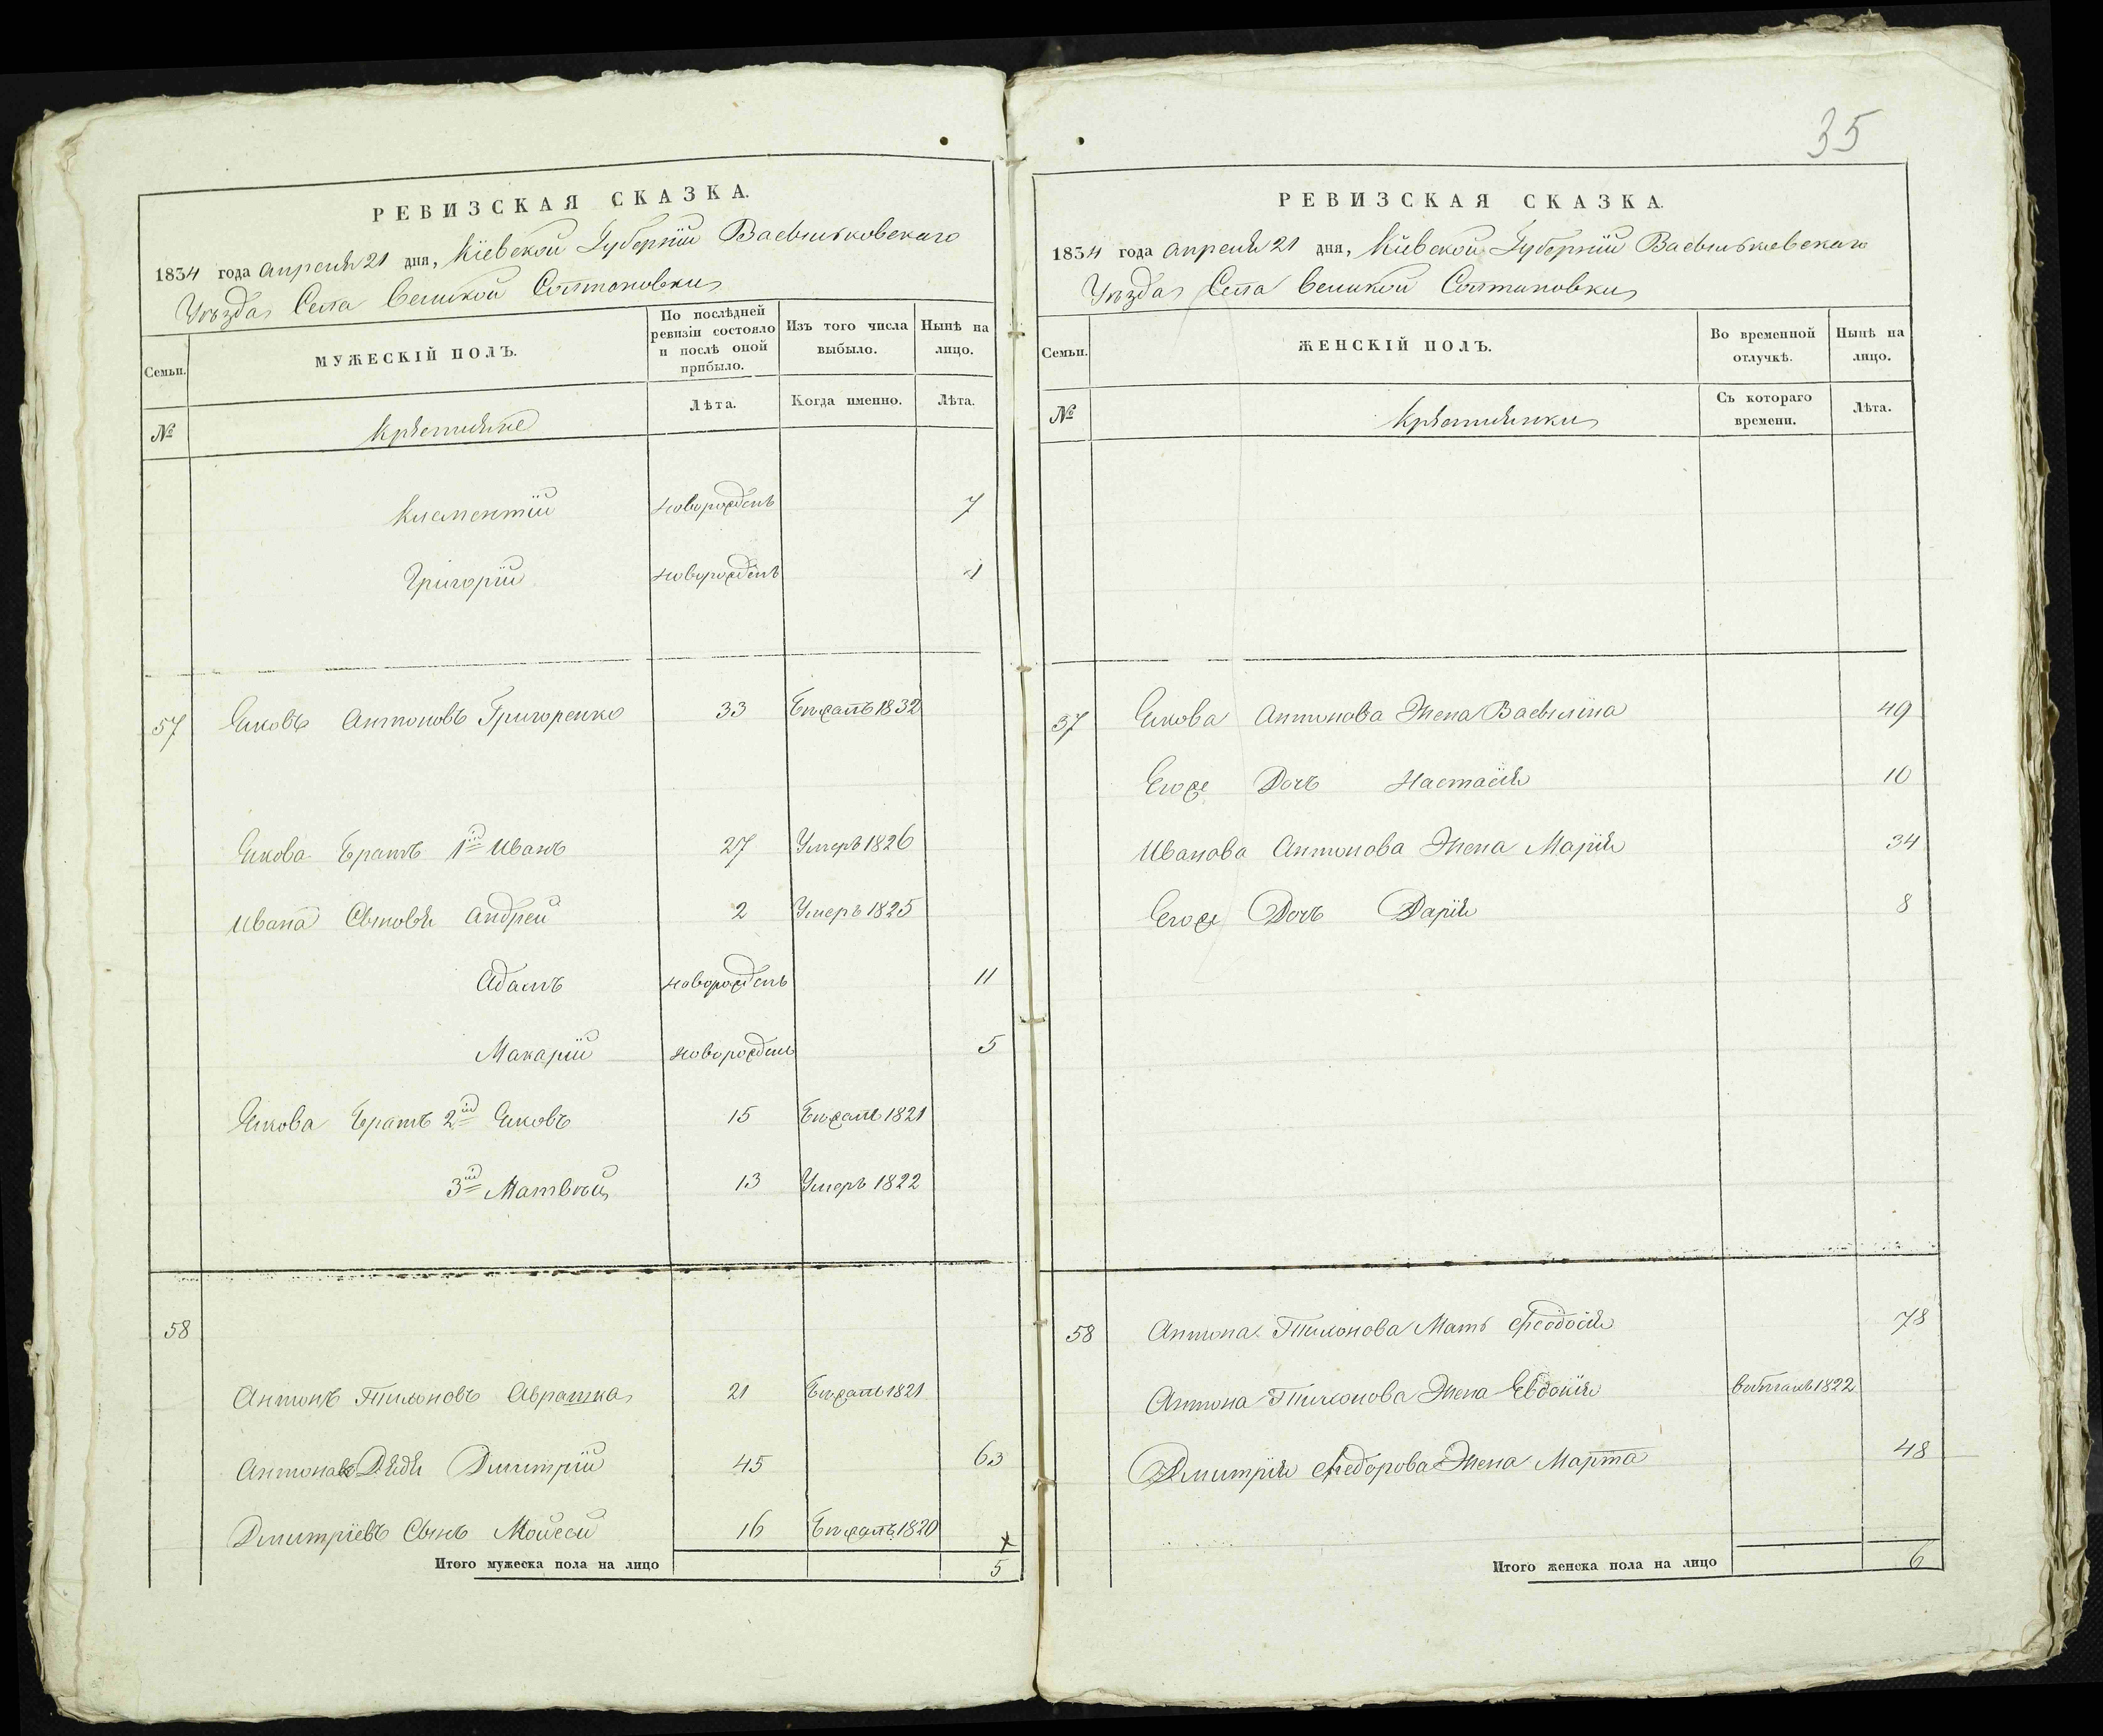 РЕВИЗСКАЯ СКАЗКА.
1834 года Апреля 21 дня, Кіевской Губерніи Васильковскаго
Уѣзда Села Великой Солтановки
Семьи.
МУЖЕСКІЙ ПОЛЪ.
По послѣдней ревизіи состояло и послѣ оной прибыло.
Изъ того числа выбыло.
Нынѣ на лицо.
№
Крѣстьяне
Лѣта.
Когда именно.
Лѣта.
Климентій новорожденъ 7
Григорій новорожденъ 1
57 Яковъ Антоновъ Григоренко 33 Бѣжалъ 1832
Якова Братъ 1й Иванъ 27 Умеръ 1826
Ивана Сыновя Андрей 2 Умеръ 1825
Адамъ новорожденъ 11
Макарій новорожденъ 5
Якова Братъ 2й Яковъ 15 Бѣжалъ 1821
3й Матвѣй 13 Умеръ 1822
58
Антонъ Тихоновъ Аврашка 21 Бѣжалъ 1821
Антоновъ Дядя Дмитрій 45 63
Дмитріевъ Сынъ Мойсей 16 Бѣжалъ 1820
Итого мужеска пола на лицо 5
35
РЕВИЗСКАЯ СКАЗКА.
1834 года Апреля 21 дня, Кіевской Губерніи Васильковскаго
Уѣзда Села Великой Солтановки
Семьи.
ЖЕНСКІЙ ПОЛЪ.
Во временной отлучкѣ.
Нынѣ на лицо.
№
Крѣстьянки
Съ котораго времени.
Лѣта.
57 Якова Антонова Жена Василина 49
Егоже Дочъ Настасія 10
Иванова Антонова Жена Марія 34
Егоже Дочъ Дарія 8
58 Антона Тихонова Мать Феодосія 78
Антона Тихонова Жена Евдокія 1822
Дмитрія Федорова Жена Марта 48
Итого женска пола на лицо 6